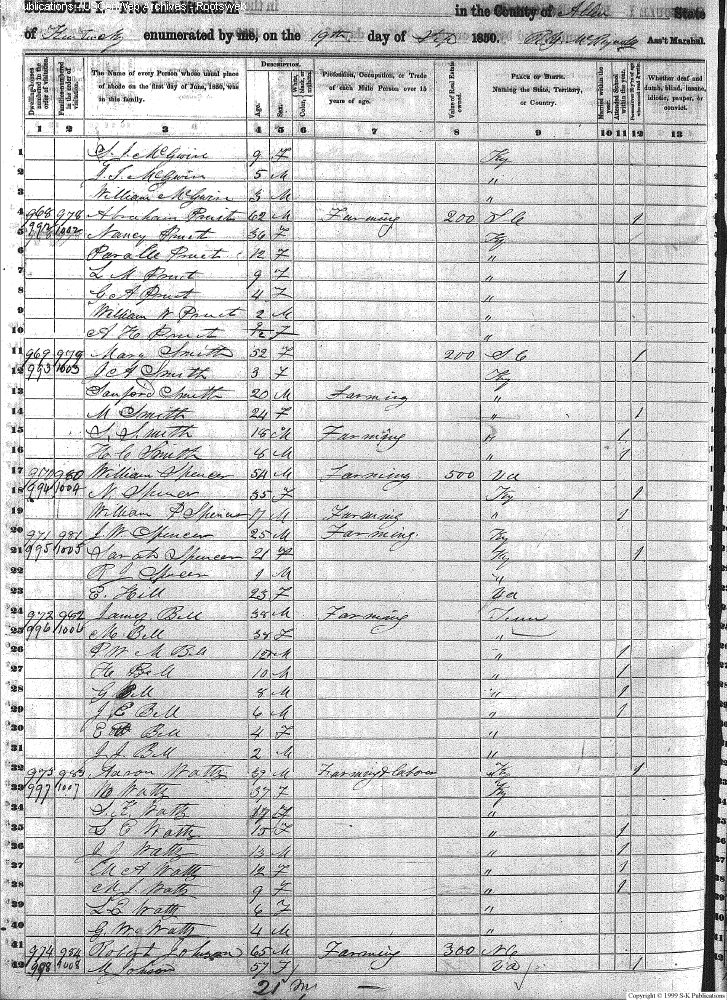 ublications - USGenWeb Archives - Rootsweb
in the County of Allen State
of Kentucky enumerated by me, on the 19th day of Sep 1850. Ass't Marshal.
Dwelling-houses numbered in the order of visitation.
Families numbered in the order of visitation.
The Name of every Person whose usual place of abode on the first day of June, 1850, was in this family.
Description.
Age.
Sex.
White, black, or mulatto.
Color
Profession, Occupation, or Trade of each Male Person over 15 years of age.
Value of Real Estate owned.
Place of Birth. Naming the State, Territory, or Country.
Married within the year.
Attended School within the year.
Whether deaf and dumb, blind, insane, idiotic, pauper, or convict.
1 2 3 4 5 6 7 8 9 10 11 12 13
1 McGwin 9 F Ky
2 McGwin 5 M "
3 William McGwin 3 M "
4 968 978 Abraham Pruit 62 M Farming 200 S C 1
5 992 1002 Nancy Pruit 36 F Ky
6 Pruit 12 F "
7 L M Pruit 9 F " 1
8 G A Pruit 4 F "
9 William W Pruit 2 M "
10 A H Pruit 9/12 F "
11 969 979 Mary Smith 52 F 200 S C 1
12 993 1003 J A Smith 3 F Ky
13 Sanford Smith 20 M Farming "
14 M Smith 24 F " 1
15 S Smith 18 M Farming " 1
16 H C Smith 6 M " 1
17 970 980 William Spencer 54 M Farming 500 Va
18 994 1004 N Spencer 35 F Ky 1
19 William P Spencer 17 M Farming " 1
20 971 981 J W Spencer 25 M Farming Ky
21 995 1005 Sarah Spencer 21 F Ky 1
22 R J Spencer 1 M "
23 E Hill 23 F Va
24 972 982 James Bell 38 M Farming Tenn
25 996 1006 M Bell 38 F "
26 P W M Bell M " 1
27 H Bell 10 M " 1
28 G Bell 8 M " 1
29 J E Bell 6 M " 1
30 Bell 4 F "
31 J J Bell 2 M "
32 983 Aaron Watts 39 M Farming & labor Ky 1
33 997 1007 Watts 37 F Ky
34 Watts 17 F "
35 S E Watts 15 F " 1
36 J J Watts 13 M " 1
37 M A Watts 12 F " 1
38 M J Watts 9 F " 1
39 S E Watts 6 F "
40 G W Watts 4 M "
41 974 984 Robert Johnson 65 M Farming 300 N C
42 998 1008 M Johnson 57 F Va 1
21 m
Copyright © 1999 S-K Publications